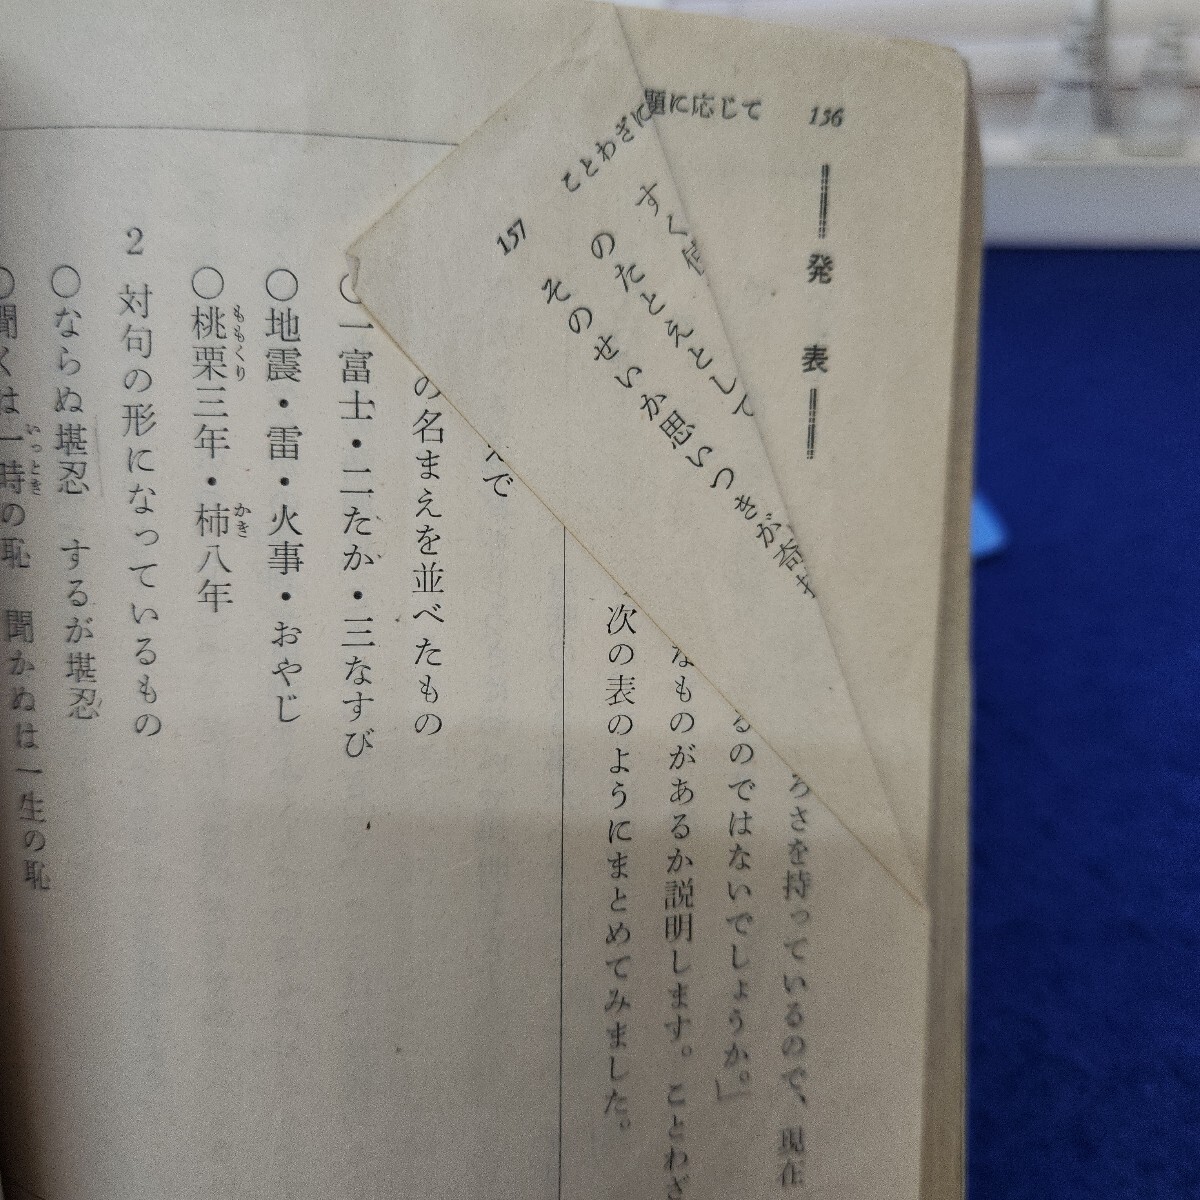 156
題に応じて
発表
ろさを持っているので、現在
るのではないでしょうか。」
なものがあるか説明します。ことわざ
次の表のようにまとめてみました。
で
の名まえを並べたもの
○一富士・二たか・三なすび
○地震・雷・火事・おやじ
○桃栗三年・柿八年
ももくり
かき
2 対句の形になっているもの
○ならぬ堪忍 するが堪忍
○聞くは一時の恥 聞かぬは一生の恥
いっとき
ことわざに
157
すく
のたとえとして
そのせいか思いつきが奇